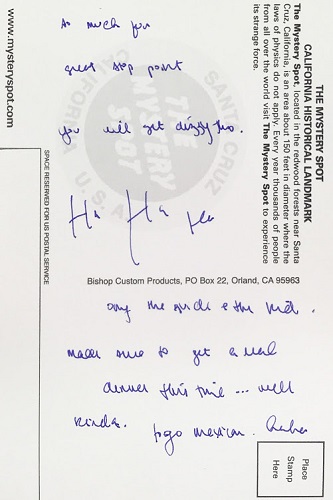 As much for
great stop point
you will get dizzy too.
Ha Ha Ha
only the guide & the kid.
made sure to get a real
dinner this time ... well
kinda. Mexican. haha
THE MYSTERY SPOT
CALIFORNIA HISTORICAL LANDMARK
The Mystery Spot, located in the redwood forests near Santa
Cruz, California, is an area about 150 feet in diameter where the
laws of physics do not apply. Every year thousands of people
from all over the world visit The Mystery Spot to experience
its strange force.
www.mysteryspot.com
SPACE RESERVED FOR US POSTAL SERVICE
THE
MYSTERY
SPOT
SANTA CRUZ
CALIFORNIA
U.S.A.
Bishop Custom Products, PO Box 22, Orland, CA 95963
Place
Stamp
Here